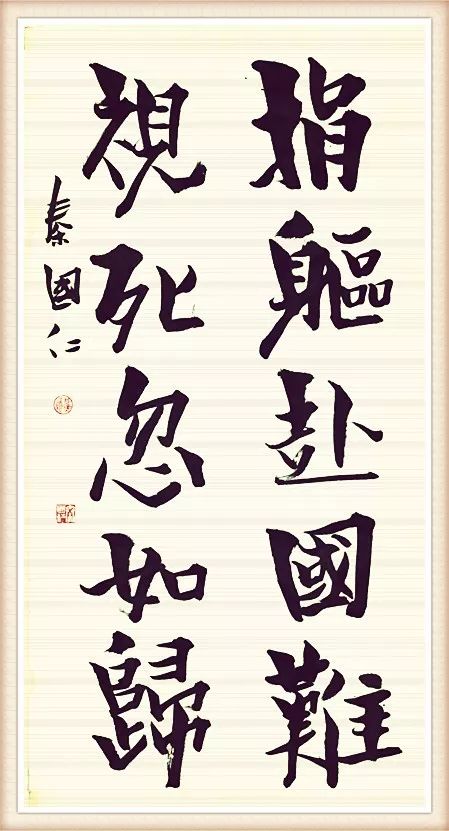 捐軀赴國難
視死忽如歸
秦國仁